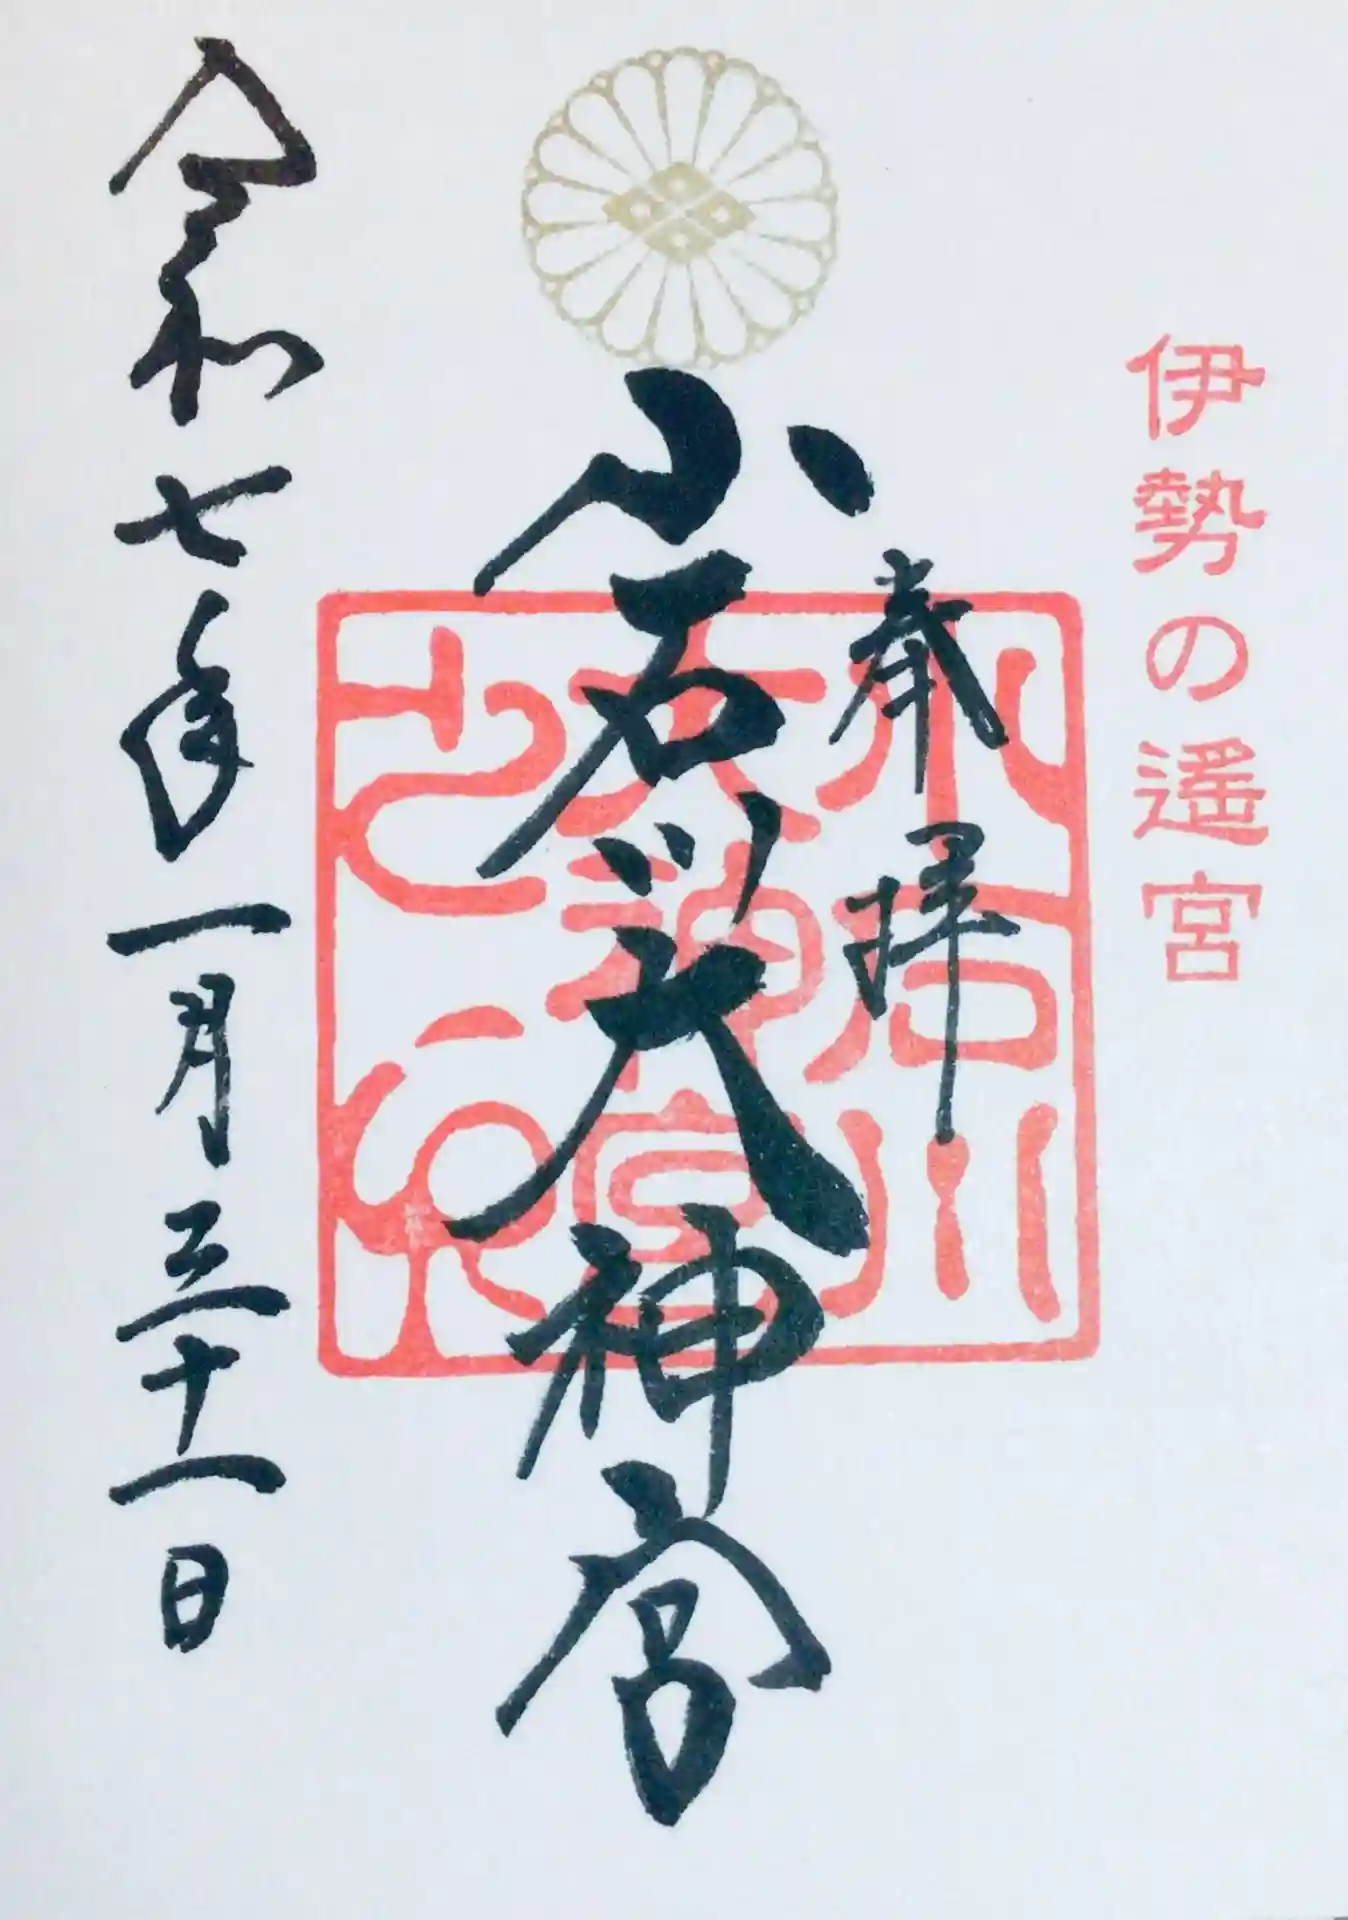 伊勢の遥宮
奉拝
小石川大神宮
小石川
大神宮
之印
令和七年一月三十一日